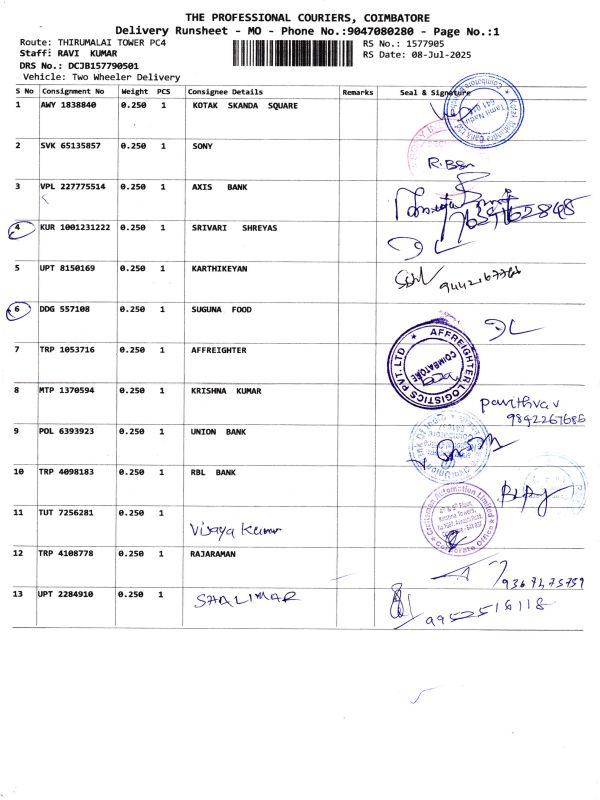 THE PROFESSIONAL COURIERS, COIMBATORE
Delivery Runsheet - MO - Phone No.:9047080280 - Page No.:1
Route: THIRUMALAI TOWER PC4 RS No.: 1577905
Staff: RAVI KUMAR RS Date: 08-Jul-2025
DRS No.: DCJB157790501
Vehicle: Two Wheeler Delivery
S No Consignment No Weight PCS Consignee Details Remarks Seal & Signature
1 AWY 1838840 0.250 1 KOTAK SKANDA SQUARE
Kotak Mahindra Bank Ltd
Tamil Nadu
2 SVK 65135857 0.250 1 SONY
3 VPL 227775514 0.250 1 AXIS BANK
7639162848
4 KUR 1001231222 0.250 1 SRIVARI SHREYAS
DL
5 UPT 8150169 0.250 1 KARTHIKEYAN
9442167766
6 DDG 557108 0.250 1 SUGUNA FOOD
DL
7 TRP 1053716 0.250 1 AFFREIGHTER
AFFREIGHTER LOGISTICS PVT. LTD
COIMBATORE
8 MTP 1370594 0.250 1 KRISHNA KUMAR
9842267686
9 POL 6393923 0.250 1 UNION BANK
10 TRP 4098183 0.250 1 RBL BANK
11 TUT 7256281 0.250 1 Vijaya Kumar
Automation Limited
Corporate Office
12 TRP 4108778 0.250 1 RAJARAMAN
9367475759
13 UPT 2284910 0.250 1 SHALIMAR
9952516118